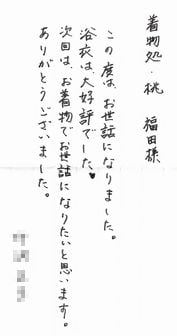 着物処・桃　福田様
この度は、お世話になりました。
浴衣は、大好評でした♥
次回は、お着物でお世話になりたいと思います。
ありがとうございました。